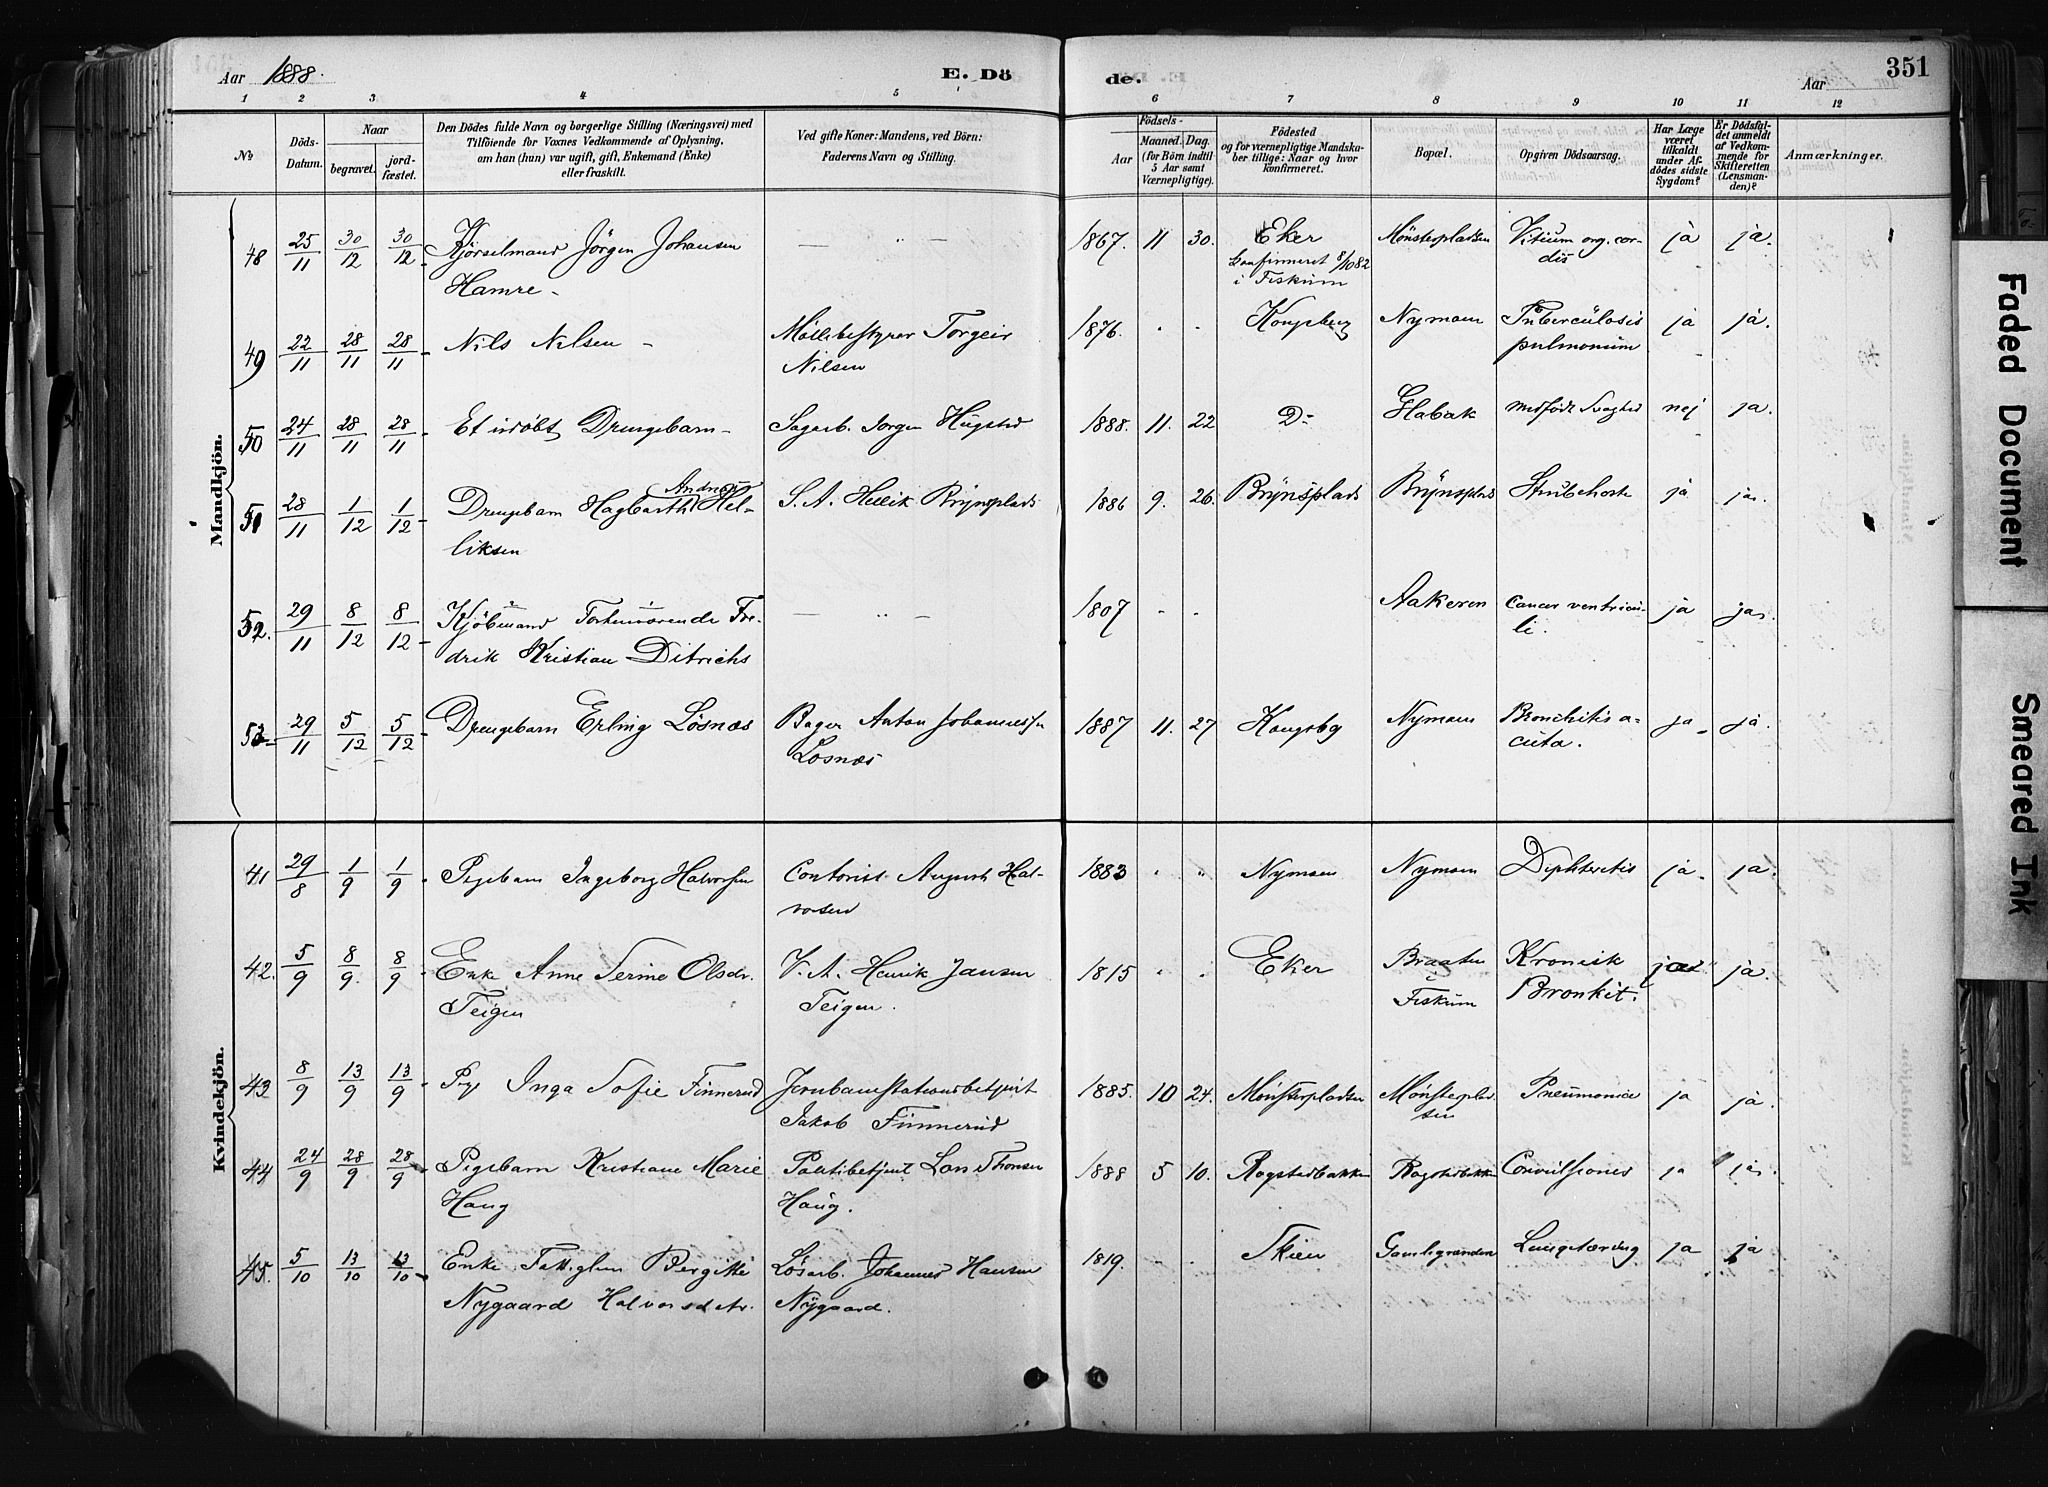 Aar 1888.
E. Döde.
Aar
351
1 2 3 4 5 6 7 8 9 10 11 12
№
Döds-Datum.
Naar
begravet.
jord-fæstet.
Den Dödes fulde Navn og borgerlige Stilling (Næringsvei) med
Tilföiende for Voxnes Vedkommende af Oplysning,
om han (hun) var ugift, gift, Enkemand (Enke)
eller fraskilt.
Ved gifte Koner: Mandens, ved Börn:
Faderens Navn og Stilling.
Födsels-
Aar
Maaned. Dag.
(for Börn indtil
5 Aar samt
Værnepligtige).
Födested
og for værnepligtige Mandska-
ber tillige: Naar og hvor
konfirmeret.
Bopæl.
Opgiven Dödsaarsag.
Har Læge
været
tilkaldt
under Af-
dödes sidste
Sygdom?
Er Dödsfal-
det anmeldt
af Vedkom-
mende for
Skifteretten
(Lensman-
den)?
Anmærkninger.
Mandkjön.
48 25/11 30/12 30/12 Kjørselmand Jörgen Johansen — " — 1867. 11 30. Eker Mønsterpladsen Vitium org. cor- ja ja.
Hamre - Konfirmeret 8/10 82 dis
i Fiskum
49 22/11 28/11 28/11 Nils Nilsen - Møllebestyrer Torgeir 1876. " " Kongsberg Nymoen Tuberculosis ja ja.
Nilsen pulmonum
50 24/11 28/11 28/11 Et udøbt Drengebarn - Sagarb. Jorgen Hugsted 1888. 11. 22 D- Glabak medfødt Svaghed nej ja.
51 28/11 1/12 1/12 Drengebarn Hagbarth Andreas Hel- S. A. Hellik Brynsplads 1886 9. 26. Brynsplads Brynsplads Strubehoste ja ja.
liksen
52. 29/11 8/12 8/12 Kjöbmand Forhenværende Fre- — " — 1807 " " Aakeren Cancer ventricu- ja ja.
drik Kristian Ditrichs li.
53 29/11 5/12 5/12 Drengebarn Erling Lösnæs Bager Anton Johannessen 1887 11. 27 Kongsbg Nymoen Bronchitis a- ja - ja.
Losnæs cuta.
Kvindekjön.
41 29/8 1/9 1/9 Pigebarn Ingeborg Halvorsen Contorist August Hal- 1883 " " Nymoen Nymoen Diphteritis ja - ja.
vorsen
42. 5/9 8/9. 8/9 Enke Anne Serine Olsdr. V. A. Henrik Jansen 1815 " " Eker Braaten Kronisk ja ja.
Teigen Teigen. i Fiskum Bronkit.
43 8/9 13/9 13/9 Pige Inga Sofie Finnerud Jernbanestationsbetjent 1885. 10 24. Mønsterpladsen Mønsterplad- Pneumonia ja ja.
Jakob Finnerud sen
44 24/9 28/9 28/9 Pigebarn Kristiane Marie Politibetjent Lars Thorsen 1888 5 10. Rogstadbakken Rogstadbakken Convulsiones ja ja.
Haug Haug.
45. 5/10 13/10 13/10 Enke Fattiglem Bergitte Løsarb. Johannes Hansen 1819. " " Skien Gamlegrænden Lungetæring ja ja
Nygaard Halvorsdatr. Nygaard.
Faded Document
Smeared Ink